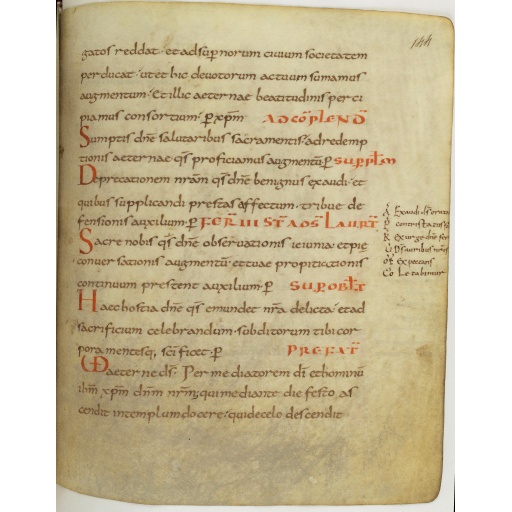 144
gatos reddat · et ad sup̄nornum civium societatem
perducat · ut et hic devotorum actuum sumamus
augmentum · Et illic aeternae beatitudinis perci
piamus consortium · p̄ xp̄m AD COPLEND̄
Sumptis dn̄e salutaribus sacramentis · ad redemp
tionis aeternae qs̄ proficiamus augmentū p̄ SUP PPLM
Deprecationem nr̄am qs̄ dn̄e benignus exaudi · et
quibus supplicandi prestas affectum · tribue de
fensionis auxilium · p̄ FER̄ III ST̄ A OS̄ LAURT̄
Sacre nobis qs̄ dn̄e observationis ieiunia · et pie
conversationis augmentū · et tuae propitiationis
continuum prestent auxilium · p̄ SUP OBLT̄
Haec hostia dn̄e qs̄ emundet nr̄a delicta · et ad
sacrificium celebrandum · subditorum tibi cor
pora mentesq, sc̄ificet · p̄ PREFAT̄
VD aeterne ds̄ · Per mediatorem dī et hominū
ihm̄ xp̄m dn̄m nr̄m; qui mediante die festo as
cendit in templum docere; qui de celo descendit
A Exaudi ds̄
contristatus
R Exurge dn̄e fer
Of Expectans
Co Letabimur